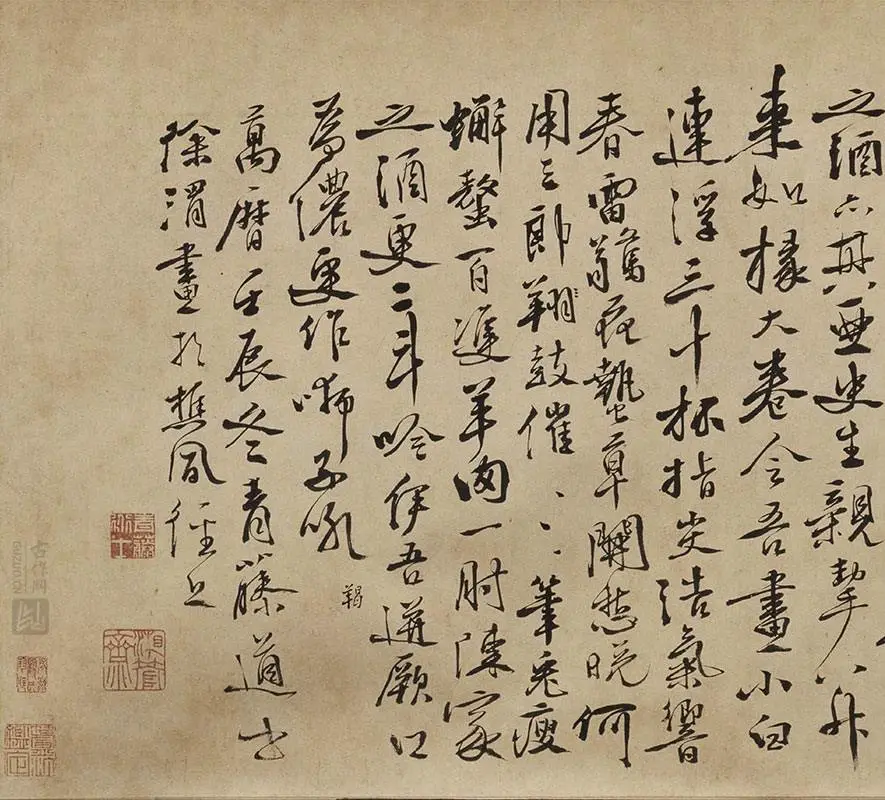 之酒亦其亞史生親挈八升
來如椽大卷令吾畫小白
連浮三十杯指尖浩氣響
春雷驚花蟄草開愁晚何
用三郎翔鼓催〻〻筆兔瘦
蠏螯百隻羊肉一肘陳家
之酒更二斗吟伊吾迸厥口
為儂更作獅子吼
羯
萬曆壬辰冬青藤道士
徐渭畫於樵風徑上